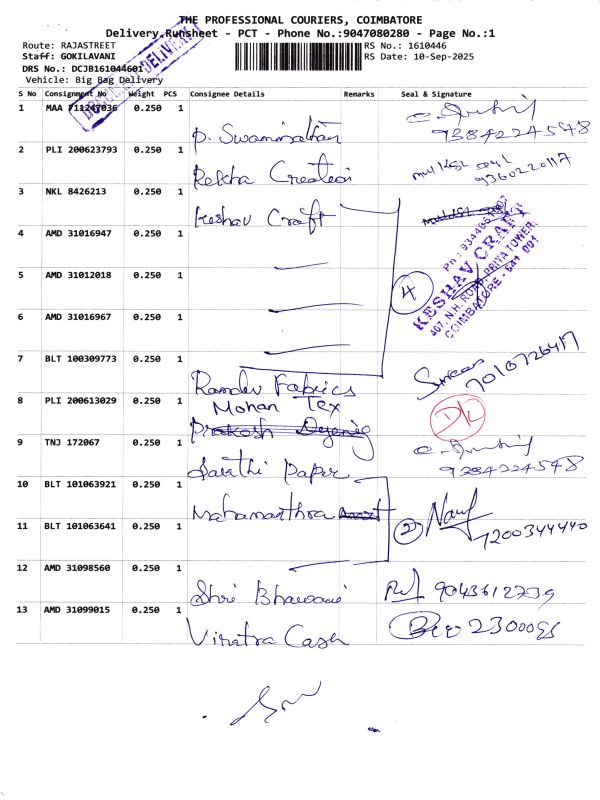 THE PROFESSIONAL COURIERS, COIMBATORE
Delivery Runsheet - PCT - Phone No.:9047080280 - Page No.:1
Route: RAJASTREET
RS No.: 1610446
Staff: GOKILAVANI
RS Date: 10-Sep-2025
DRS No.: DCJB161044601
Vehicle: Big Bag Delivery
S No Consignment No Weight PCS Consignee Details Remarks Seal & Signature
1 MAA 711247036 0.250 1
P. Swaminathan 9384224578
2 PLI 200623793 0.250 1
Rekha Creation 9360220117
3 NKL 8426213 0.250 1
Keshav Craft
4 AMD 31016947 0.250 1
KESHAV CRAFT
COIMBATORE - 641 001
4
5 AMD 31012018 0.250 1
6 AMD 31016967 0.250 1
7 BLT 100309773 0.250 1
Ramdev Fabrics 7010726417
8 PLI 200613029 0.250 1
Mohan Tex
D/L
Prakash
9 TNJ 172067 0.250 1
Sarathi Paper 9384224578
10 BLT 101063921 0.250 1
Mahamanthra
2
7200344440
11 BLT 101063641 0.250 1
12 AMD 31098560 0.250 1
Shri Bhawani 9043612739
13 AMD 31099015 0.250 1
Viratra Cash